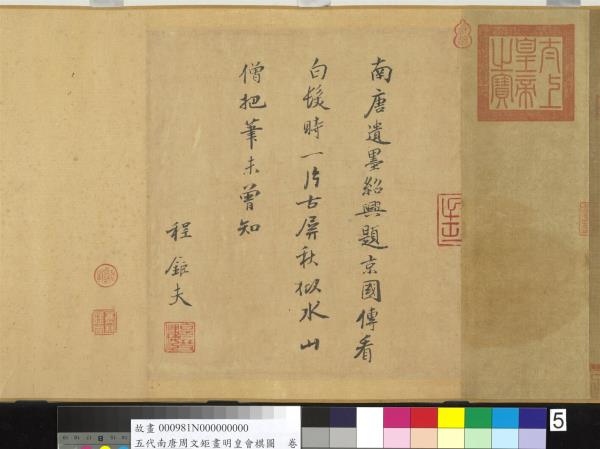 南唐遺墨紹興題京國傳看
白髮時一片古屏秋似水山
僧把筆未曾知
程鉅夫
太上皇帝之寶
5
故畫 000981N000000000
五代南唐周文矩畫明皇會棋圖 卷